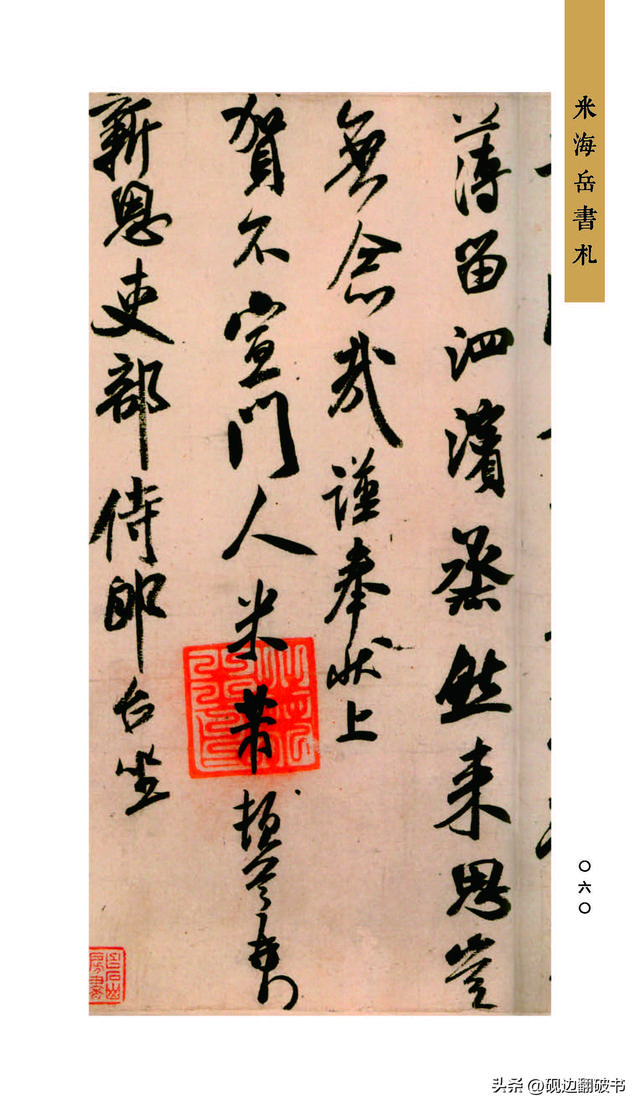 米海岳書札
薄留泗濱烝然来思豈
無念哉謹奉状上
賀不宣門人米芾頓首
新恩吏部侍郎台坐
〇六〇
头条 @砚边翻破书